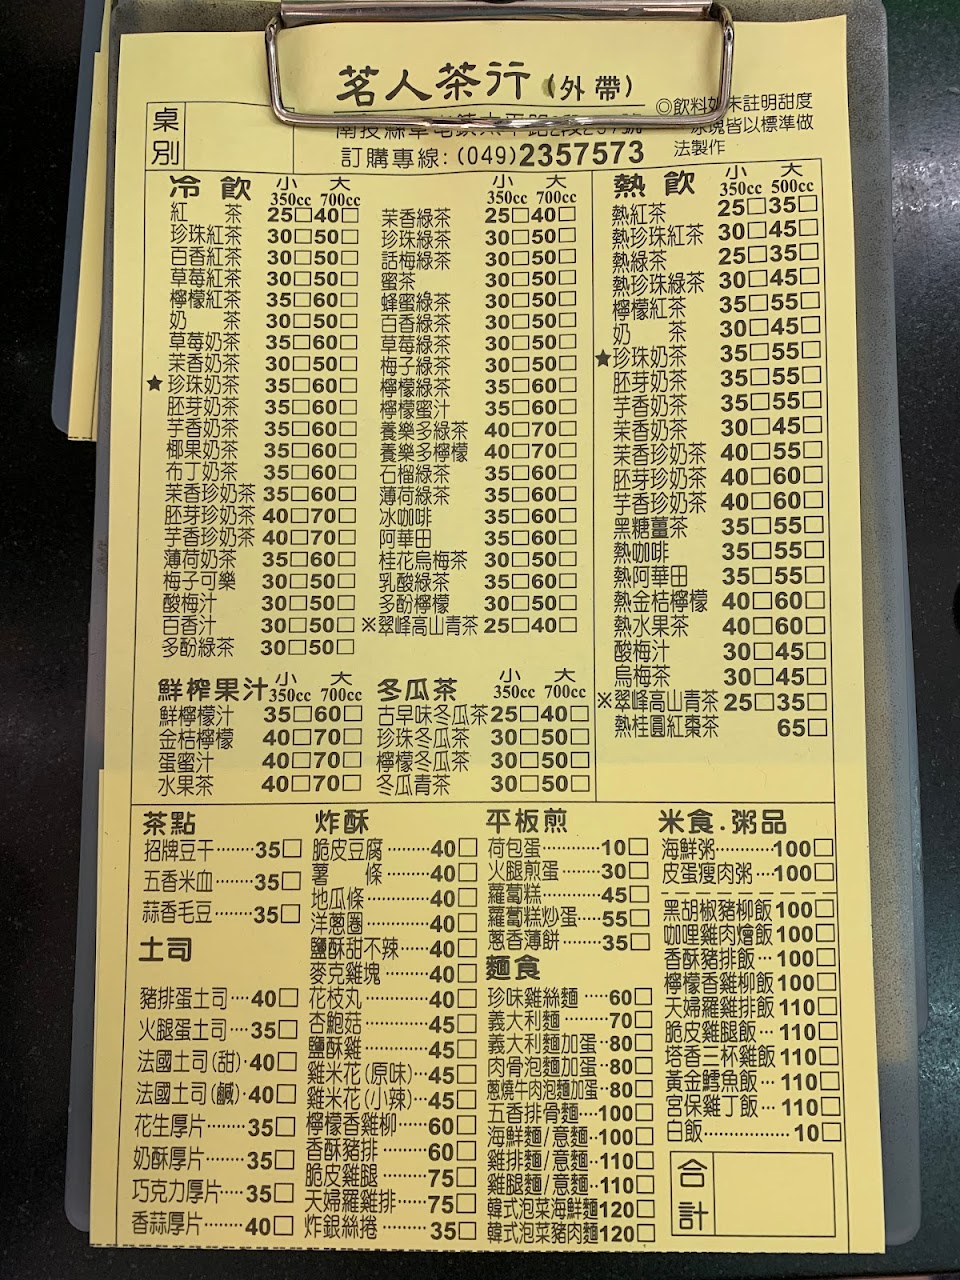 茗人茶行(外帶)
桌別
訂購專線:(049)2357573
◎飲料如未註明甜度
冰塊皆以標準做
法製作
冷飲 小350cc 大700cc
紅茶 25□40□
珍珠紅茶 30□50□
百香紅茶 30□50□
草莓紅茶 30□50□
檸檬紅茶 35□60□
奶茶 30□50□
草莓奶茶 35□60□
茉香奶茶 30□50□
★珍珠奶茶 35□60□
胚芽奶茶 35□60□
芋香奶茶 35□60□
椰果奶茶 35□60□
布丁奶茶 35□60□
茉香珍奶茶 35□60□
胚芽珍奶茶 40□70□
芋香珍奶茶 40□70□
薄荷奶茶 35□60□
梅子可樂 30□50□
酸梅汁 30□50□
百香汁 30□50□
多酚綠茶 30□50□
小350cc 大700cc
茉香綠茶 25□40□
珍珠綠茶 30□50□
話梅綠茶 30□50□
蜜茶 30□50□
蜂蜜綠茶 30□50□
百香綠茶 30□50□
草莓綠茶 30□50□
梅子綠茶 30□50□
檸檬綠茶 35□60□
檸檬蜜汁 35□60□
養樂多綠茶 40□70□
養樂多檸檬 40□70□
石榴綠茶 35□60□
薄荷綠茶 35□60□
冰咖啡 35□60□
阿華田 35□60□
桂花烏梅茶 30□50□
乳酸綠茶 35□60□
多酚檸檬 30□50□
※翠峰高山青茶 25□40□
熱飲 小350cc 大500cc
熱紅茶 25□35□
熱珍珠紅茶 30□45□
熱綠茶 25□35□
熱珍珠綠茶 30□45□
檸檬紅茶 35□55□
奶茶 30□45□
★珍珠奶茶 35□55□
胚芽奶茶 35□55□
芋香奶茶 35□55□
茉香奶茶 30□45□
茉香珍奶茶 40□55□
胚芽珍奶茶 40□60□
芋香珍奶茶 40□60□
黑糖薑茶 35□55□
熱咖啡 35□55□
熱阿華田 35□55□
熱金桔檸檬 40□60□
熱水果茶 40□60□
酸梅汁 30□45□
烏梅茶 30□45□
※翠峰高山青茶 25□35□
熱桂圓紅棗茶 65□
鮮榨果汁 小350cc 大700cc
鮮檸檬汁 35□60□
金桔檸檬 40□70□
蛋蜜汁 40□70□
水果茶 40□70□
冬瓜茶 小350cc 大700cc
古早味冬瓜茶 25□40□
珍珠冬瓜茶 30□50□
檸檬冬瓜茶 30□50□
冬瓜青茶 30□50□
茶點
招牌豆干……35□
五香米血……35□
蒜香毛豆……35□
土司
豬排蛋土司…40□
火腿蛋土司…35□
法國土司(甜)·40□
法國土司(鹹)·40□
花生厚片……35□
奶酥厚片……35□
巧克力厚片…35□
香蒜厚片……40□
炸酥
脆皮豆腐……40□
薯條……40□
地瓜條……40□
洋蔥圈……40□
鹽酥甜不辣…40□
麥克雞塊……40□
花枝丸……40□
杏鮑菇……45□
鹽酥雞……45□
雞米花(原味)··45□
雞米花(小辣)··45□
檸檬香雞柳…60□
香酥豬排……60□
脆皮雞腿……75□
天婦羅雞排…75□
炸銀絲捲……35□
平板煎
荷包蛋……10□
火腿煎蛋……30□
蘿蔔糕……45□
蘿蔔糕炒蛋…55□
蔥香薄餅……35□
麵食
珍味雞絲麵…60□
義大利麵……70□
義大利麵加蛋··80□
肉骨泡麵加蛋··80□
蔥燒牛肉泡麵加蛋··80□
五香排骨麵…100□
海鮮麵/意麵··100□
雞排麵/意麵··110□
雞腿麵/意麵··110□
韓式泡菜海鮮麵120□
韓式泡菜豬肉麵120□
米食.粥品
海鮮粥……100□
皮蛋瘦肉粥…100□
黑胡椒豬柳飯100□
咖哩雞肉燴飯100□
香酥豬排飯…100□
檸檬香雞柳飯100□
天婦羅雞排飯110□
脆皮雞腿飯…110□
塔香三杯雞飯110□
黃金鱈魚飯…110□
宮保雞丁飯…110□
白飯……10□
合計